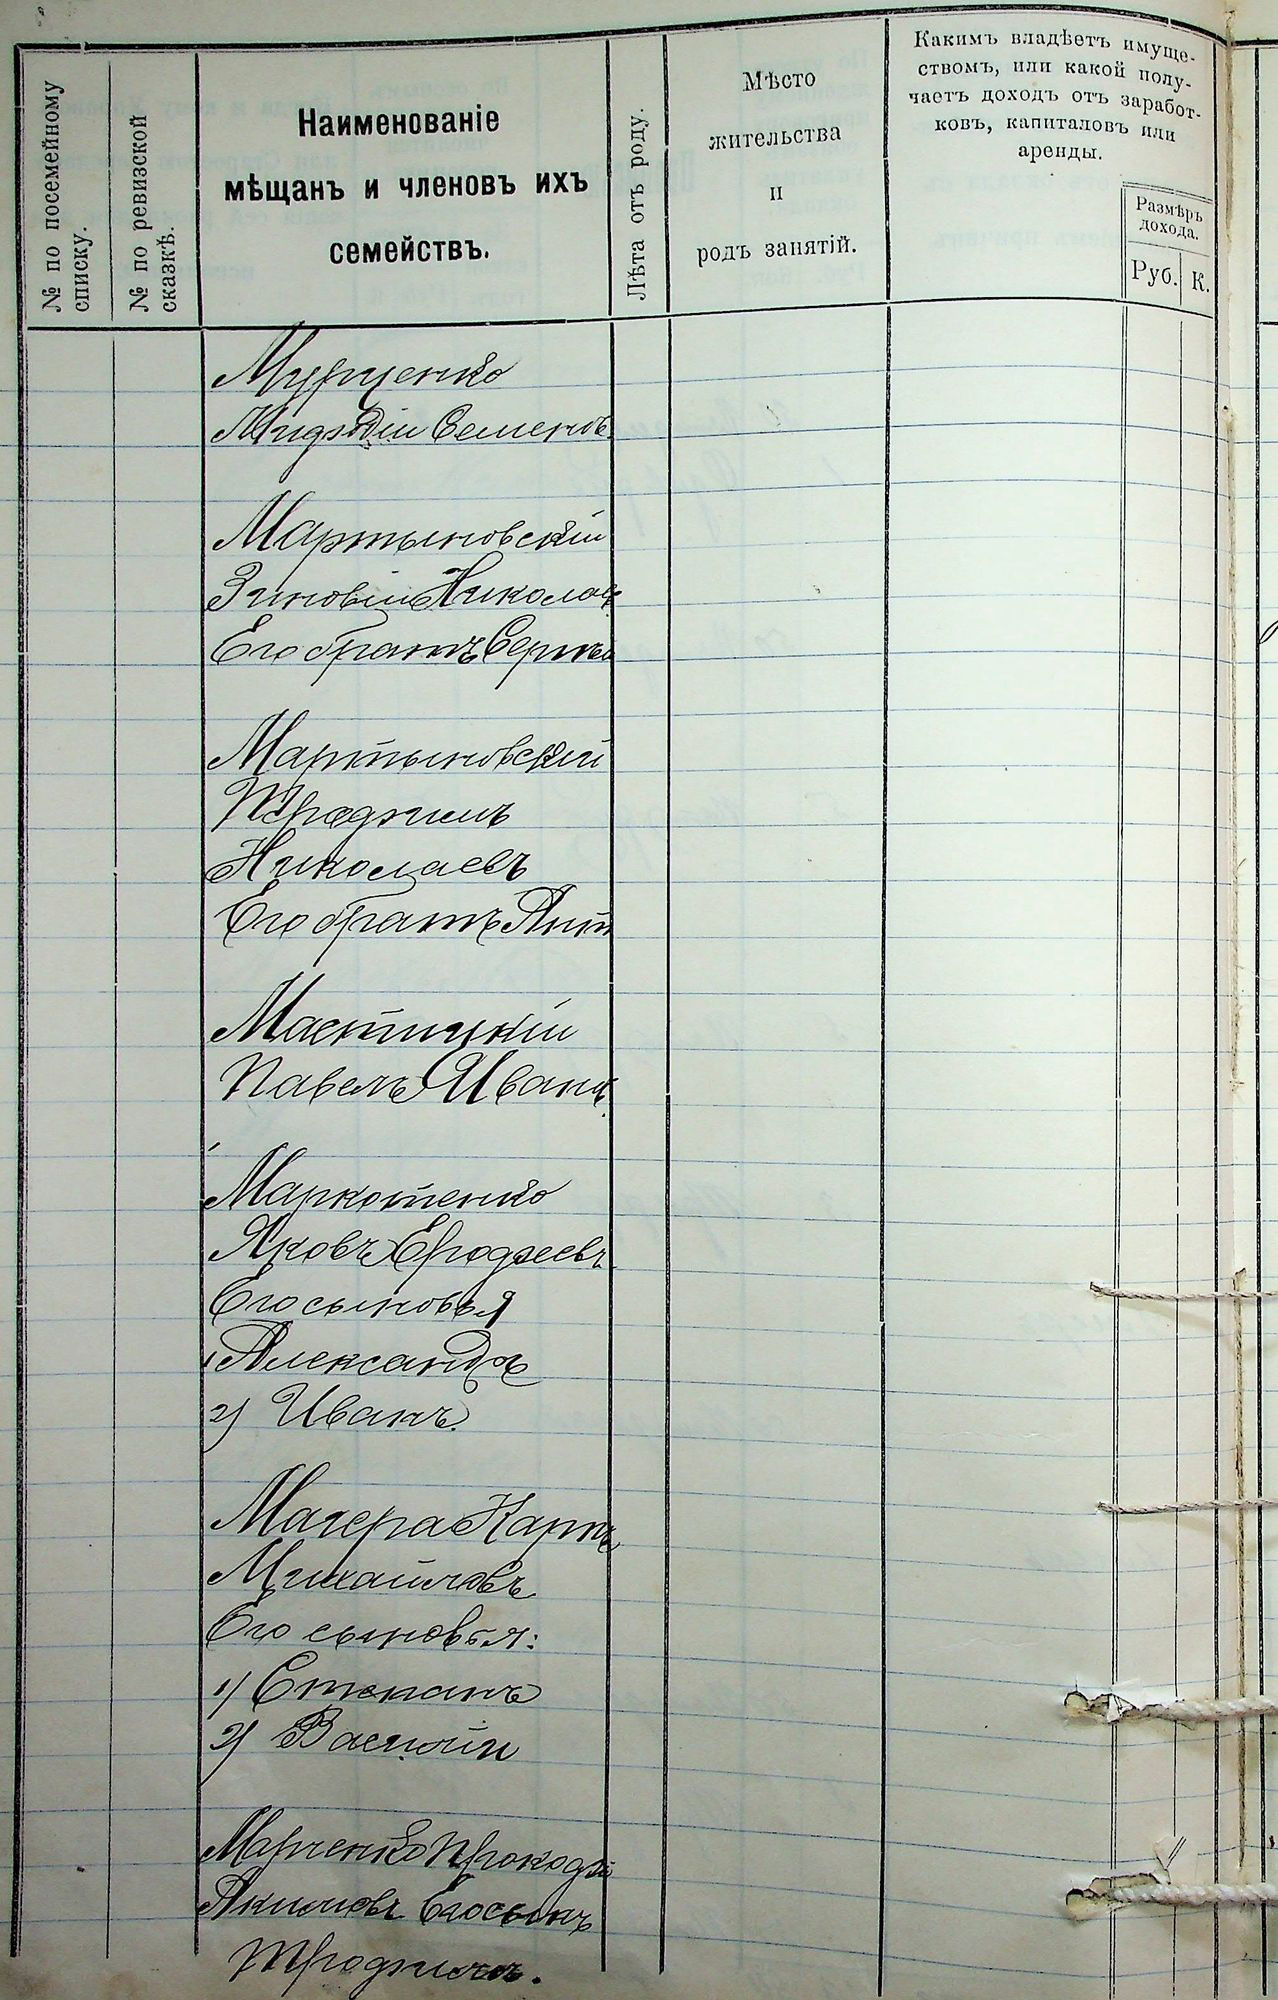 № по посемейному
списку.
№ по ревизской
сказкѣ.
Наименованіе
мѣщанъ и членовъ ихъ
семействъ.
Лѣта отъ роду.
Мѣсто
жительства
и
родъ занятій.
Какимъ владѣетъ имуще-
ствомъ, или какой полу-
чаетъ доходъ отъ заработ-
ковъ, капиталовъ или
аренды.
Размѣръ
дохода.
Руб.
К.
Семенов
Мартыновскій
Зиновій Николае
Его братъ Сергѣй
Мартыновскій
Трофимъ
Николаевъ
Его братъ Ант
Мастицкій
Павелъ Иванъ
Маркотенко
Яковъ Ерофеевъ
Его сыновья
1 Александръ
2) Иванъ.
Магера Карпъ
Михайловъ
Его сыновья:
1) Степанъ
2) Василій
Марченко Прокофій
Акимовъ Его сынъ
Трофимъ.